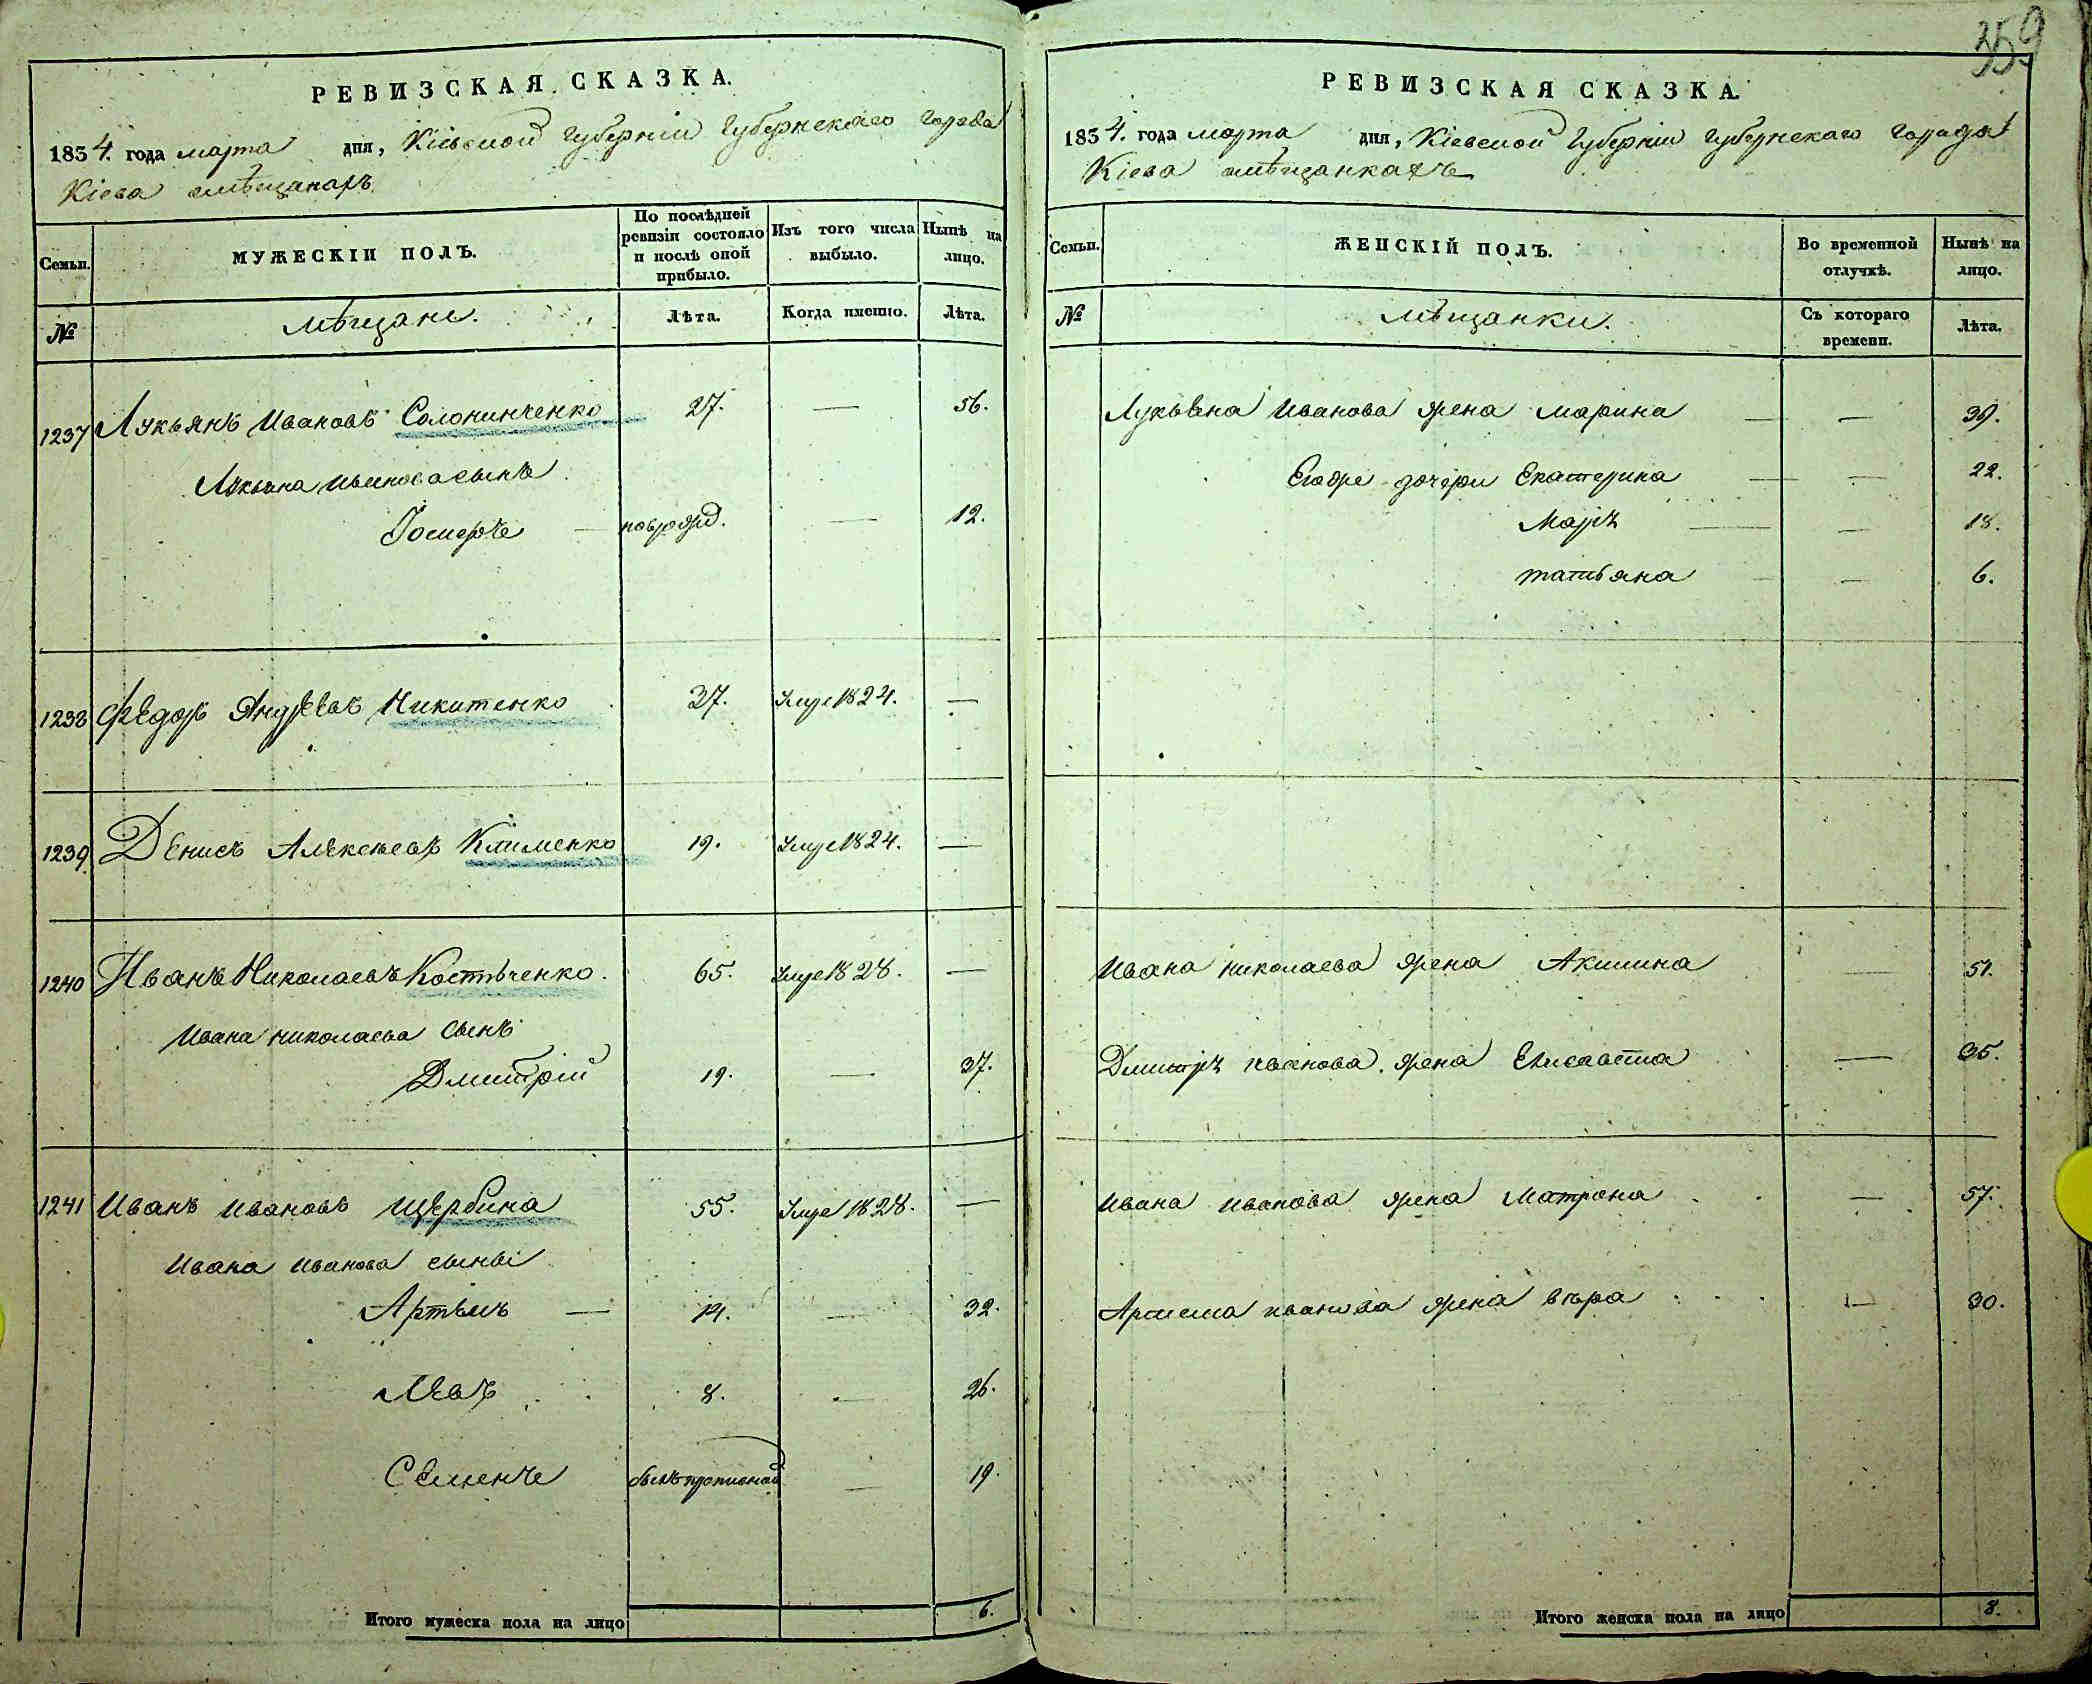 359
РЕВИЗСКАЯ СКАЗКА.
1834. года марта дня, Кіевской Губерніи Губернскаго города
Кіева мѣщанахъ
Семьи.
МУЖЕСКІЙ ПОЛЪ.
По послѣдней ревизіи состояло и послѣ оной прибыло.
Изъ того числа выбыло.
Нынѣ на лицо.
№
Мѣщане.
Лѣта.
Когда именно.
Лѣта.
1237 Лукьянъ Ивановъ Солонинченко 27. — 56.
Лукьяна Иванова сынъ
новрожд. — 12.
1238 Федоръ Андреевъ Никитенко 37. Умре 1824. —
1239 Денисъ Алексѣевъ Клименко 19. Умре 1824. —
1240 Иванъ Николаевъ Костѣченко. 65. Умре 1828. —
Ивана Николаева сынъ
Дмитрій 19. — 37.
1241 Иванъ Ивановъ Щербина 55. Умре 1828. —
Ивана Иванова сыны
Артемъ — 14. — 32.
Левъ 8. 26.
Семенъ былъ прописной — 19.
Итого мужеска пола на лицо 6.
РЕВИЗСКАЯ СКАЗКА.
1834. года марта дня, Кіевской Губерніи Губернскаго города
Кіева мѣщанкахъ
Семьи.
ЖЕНСКІЙ ПОЛЪ.
Во временной отлучкѣ.
Нынѣ на лицо.
№
Мѣщанки.
Съ котораго времени.
Лѣта.
Лукьяна Иванова жена Марина — — 39.
Его дочери Екатерина — — 22.
— — 18.
татьяна — 6.
Ивана Николаева жена Акилина — 51.
Иванова жена Елисавета — 35.
Ивана Иванова жена Матрона — 57.
Артема Иванова жена Вѣра — 30.
Итого женска пола на лицо 8.